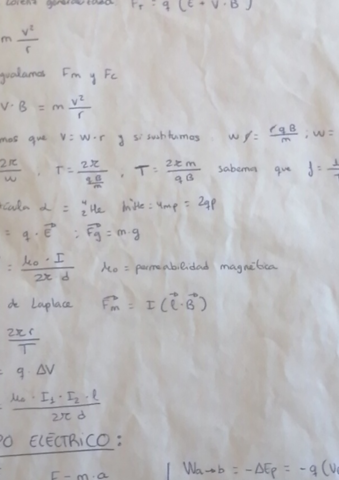 generalizada F_r = q (E + V · B)
m v²/r
gualamos Fm y Fc
V · B = m v²/r
mos que V = w · r y si sustituimos w r = rqB/m ; w =
2π/w , T = 2π/(qB/m) , T = 2πm/qB sabemos que f =
α = ⁴₂He = 2qp
= q · E⃗ ; F⃗g = m · g
= μ₀ · I / 2π d μ₀ = permeabilidad magnética
de Laplace F⃗m = I (l⃗ · B⃗)
2π r / T
= q · ΔV
= μ₀ · I₁ · I₂ · l / 2π d
PO ELÉCTRICO:
F = m · a | Wa→b = −ΔEp = −q (V